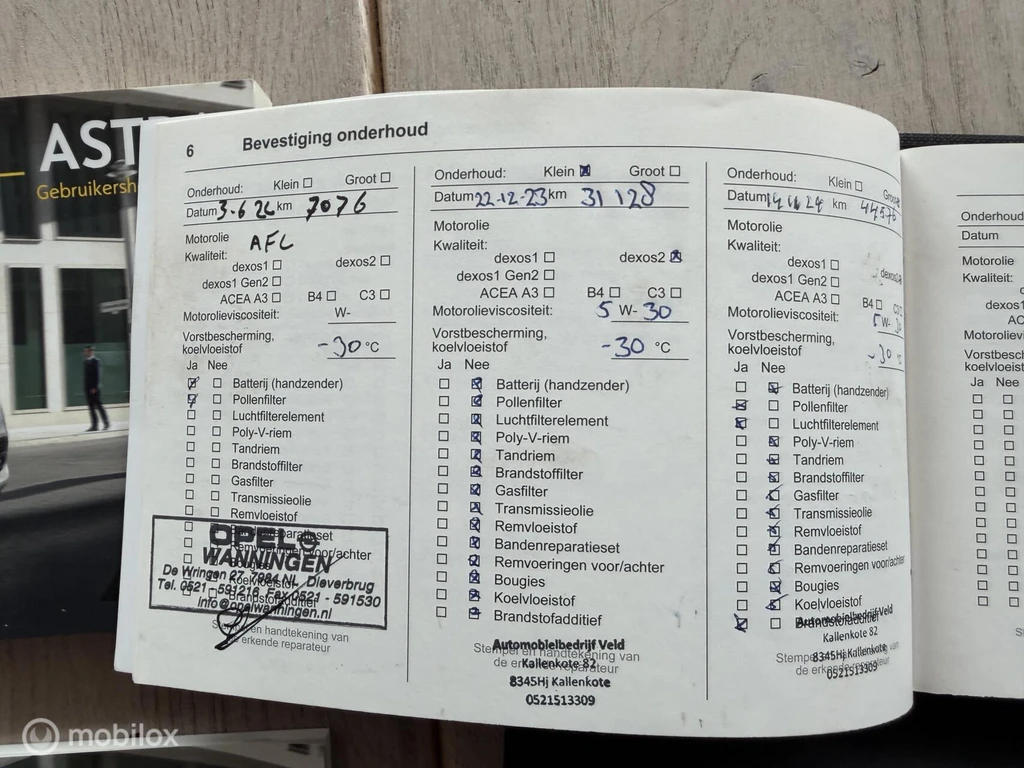 ASTR
Gebruikersh
6 Bevestiging onderhoud
Onderhoud: Klein Groot
Datum 3-6 22 km 7076
Motorolie AFL
Kwaliteit:
dexos1 dexos2
dexos1 Gen2
ACEA A3 B4 C3
Motorolieviscositeit: W-
Vorstbescherming,
koelvloeistof -30 °C
Ja Nee
Batterij (handzender)
Pollenfilter
Luchtfilterelement
Poly-V-riem
Tandriem
Brandstoffilter
Gasfilter
Transmissieolie
Remvloeistof
Bandenreparatieset
Remvoeringen voor/achter
Bougies
Koelvloeistof
Brandstofadditief
OPEL
WANNINGEN
De Wringen 27 7984 NL Dieverbrug
Tel. 0521 - 591216 Fax 0521 - 591530
info@opelwanningen.nl
Stempel en handtekening van
de erkende reparateur
Onderhoud: Klein Groot
Datum 22-12-23 km 31128
Motorolie
Kwaliteit:
dexos1 dexos2
dexos1 Gen2
ACEA A3 B4 C3
Motorolieviscositeit: 5 W- 30
Vorstbescherming,
koelvloeistof -30 °C
Ja Nee
Batterij (handzender)
Pollenfilter
Luchtfilterelement
Poly-V-riem
Tandriem
Brandstoffilter
Gasfilter
Transmissieolie
Remvloeistof
Bandenreparatieset
Remvoeringen voor/achter
Bougies
Koelvloeistof
Brandstofadditief
Automobielbedrijf Veld
Stempel en handtekening van
Kallenkote 82
de erkende reparateur
8345Hj Kallenkote
0521513309
Onderhoud: Klein Groot
Datum km
Motorolie
Kwaliteit:
dexos1 dexos2
dexos1 Gen2
ACEA A3 B4 C3
Motorolieviscositeit: 5 W- 30
Vorstbescherming,
koelvloeistof -30 °C
Ja Nee
Batterij (handzender)
Pollenfilter
Luchtfilterelement
Poly-V-riem
Tandriem
Brandstoffilter
Gasfilter
Transmissieolie
Remvloeistof
Bandenreparatieset
Remvoeringen voor/achter
Bougies
Koelvloeistof
Brandstofadditief
Automobielbedrijf Veld
Kallenkote 82
Stempel en handtekening van
8345Hj Kallenkote
de erkende reparateur
0521513309
Onderhoud
Datum
Motorolie
Kwaliteit:
dexos1
dexos1
AC
Motorolievi
Vorstbesch
koelvloeist
Ja Nee
mobilox